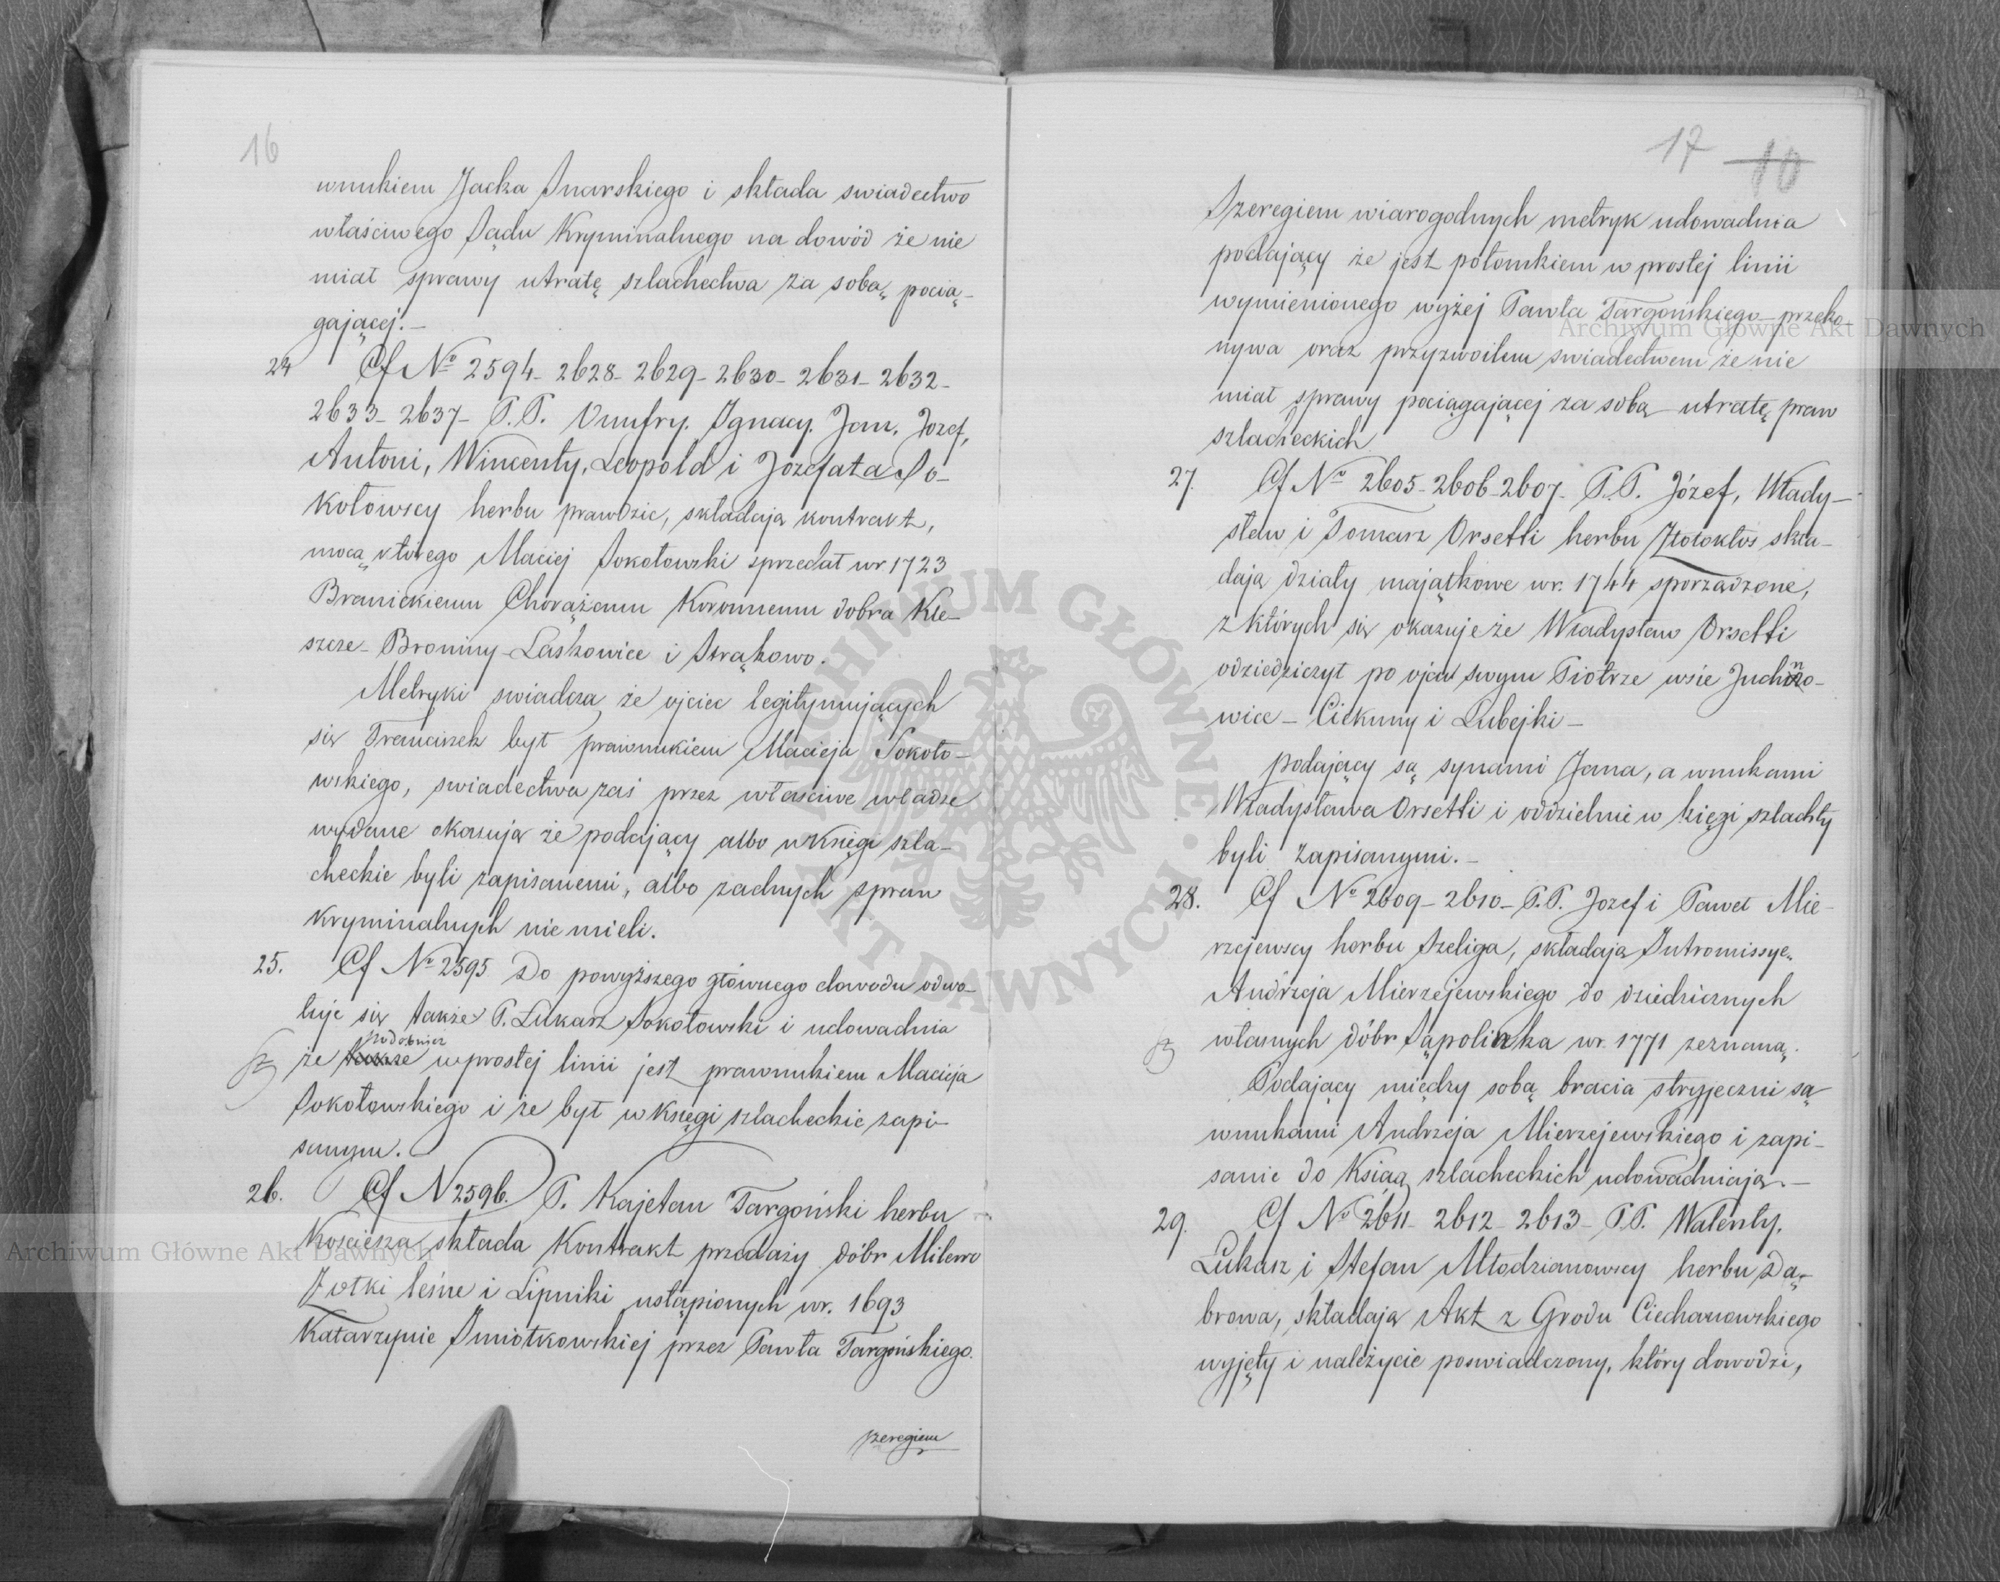 16
wnukiem Jacka Snarskiego i składa swiadectwo
właściwego Sądu Kryminalnego na dowód że nie
miał sprawy utratę szlachectwa za sobą pocią-
gającej.—
24 Cf № 2594- 2628- 2629- 2630- 2631- 2632-
2633- 2637- P.P. Onufry, Ignacy, Jan, Jozef,
Antoni, Wincenty, Leopold i Józefata So-
kołowscy herbu prawdzic, składają kontrakt,
mocą którego Maciej Sokołowski sprzedał w r. 1723
Branickiemu Chorążemu Koronnemu dobra Kle-
szcze- Broniny- Laskowice i Strąkowo.
Metryki swiadczą że ojciec legitymujących
się Franciszek był prawnukiem Macieja Sokoło-
wskiego, swiadectwa zaś przez właściwe władze
wydane okazują że podający albo w Księgi szla-
checkie byli zapisanemi, albo żadnych spraw
kryminalnych nie mieli.
25. Cf № 2595 Do powyższego głównego dowodu odwo-
łuje się także P. Łukasz Sokołowski i udowadnia
podobnież
że także w prostej linii jest prawnukiem Macieja
Sokołowskiego i że był w Księgi szlacheckie zapi-
sanym.
26. Cf N 2596. P. Kajetan Targoński herbu
Kościesza składa Kontrakt przedaży dóbr Milewo
Żółki leśne i Lipniki ustąpionych w r. 1693
Katarzynie Smiotkowskiej przez Pawła Targońskiego.
szeregiem
17 10
Szeregiem wiarogodnych metryk udowadnia
podający że jest potomkiem w prostej linii
wymienionego wyżej Pawła Targońskiego- przeko-
nywa oraz przyzwoitem swiadectwem że nie
miał sprawy pociągającej za sobą utratę praw
szlacheckich
27. Cf № 2605- 2606- 2607- P.P. Józef, Włady-
sław i Tomasz Orsetti herbu Złotokłos skła-
dają działy majątkowe w r. 1744 sporządzone,
z których się okazuje że Władysław Orsetti
odziedziczył po ojcu swym Piotrze wsie Juchno-
wice- Ciekuny i Lubejki-
podający są synami Jana, a wnukami
Władysława Orsetti i oddzielnie w księgi szlachty
byli zapisanymi.-
28. Cf № 2609- 2610- P.P. Jozef i Paweł Mie-
rzejewscy herbu Szeliga, składają Intromissye
Andrzeja Mierzejewskiego do dziedzicznych
własnych dóbr Sąpolinka w r. 1771 zeznaną.
Podający między sobą bracia stryjeczni są
wnukami Andrzeja Mierzejewskiego i zapi-
sanie do Ksiąg szlacheckich udowadniają.-
29. Cf № 2611- 2612- 2613- P.P. Walenty,
Łukasz i Stefan Młodzianowscy herbu Dą-
browa, składają Akt z Grodu Ciechanowskiego
wyjęty i należycie poswiadczony, który dowodzi,
Archiwum Główne Akt Dawnych
Archiwum Główne Akt Dawnych
ARCHIWUM GŁÓWNE · AKT DAWNYCH ·